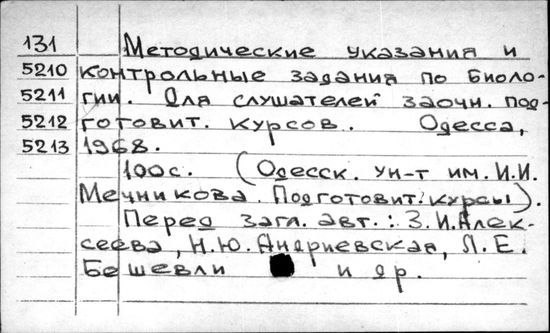 131 Методические указания и
5210 контрольные задания по биоло-
5211 гии. Для слушателей заочн. под-
5212 готовит. курсов. Одесса,
5213 1968.
100с. (Одесск. ун-т им. И.И.
Мечникова. Подготовит. курсы).
Перед загл. авт.: З.И.Алек-
сеева, Н.Ю.Андриевская, Л.Е.
Бешевли и др.